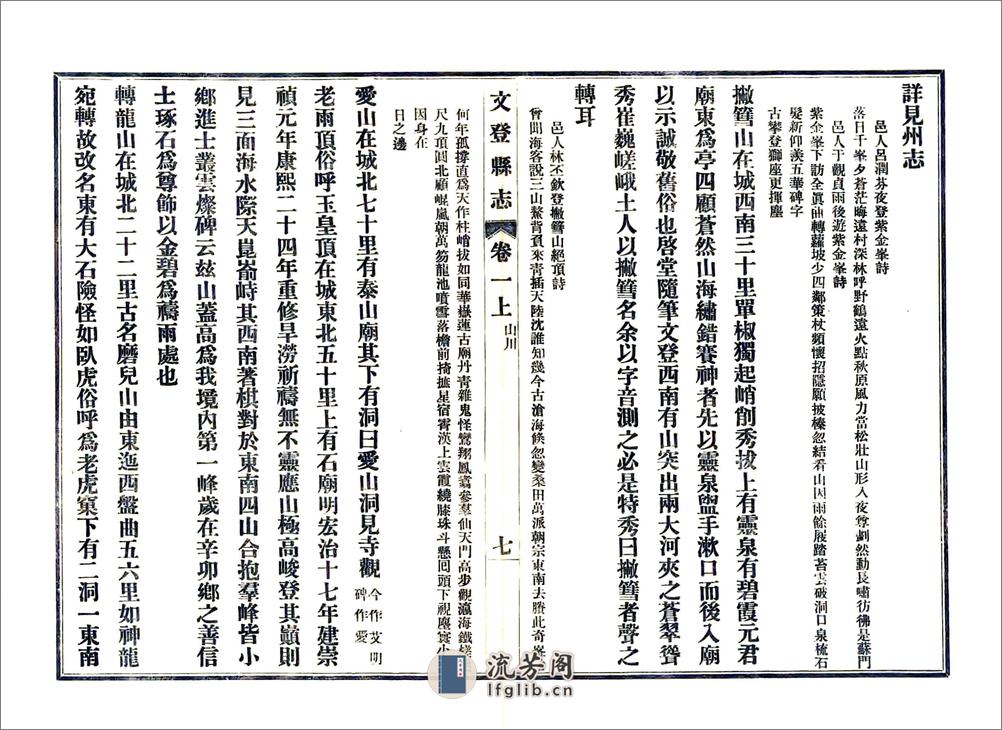 詳見州志
邑人呂潤芬夜登紫金峯詩
落日千峯夕蒼茫晦遠村深林呼野鶴遠火點秋原風力當松壯山形入夜尊劃然動長嘯彷彿是蘇門
邑人于觀貞雨後遊紫金峯詩
紫金峯下訪全眞曲轉蘿坡少四鄰策杖頻懷招隱願披榛忽結看山因雨餘屐踏苔雲破洞口泉梳石
髮新仰羨五華碑字
古攀登獅座更揮塵
撇簪山在城西南三十里單椒獨起峭削秀拔上有靈泉有碧霞元君
廟東爲亭四顧蒼然山海繡錯賽神者先以靈泉盥手漱口而後入廟
以示誠敬舊俗也啓堂隨筆文登西南有山突出兩大河夾之蒼翠聳
秀崔巍嵯峨土人以撇簪名余以字音測之必是特秀曰撇簪者聲之
轉耳
邑人林丕欽登撇簪山絕頂詩
曾聞海客說三山鰲背頁來靑插天陸沈誰知幾今古滄海倏忽變桑田萬派朝宗東南去賸此奇峯
文登縣志
卷一上
山川
七
何年孤撐直爲天作柱嶒拔如同華嶽蓮古廟丹青雜鬼怪鸞翔鳳翥參羣仙天門高步觀瀛海鐵槎
尺九項圓北顧崐嵐朝萬笏龍池噴雪落檐前掎摭星宿霄漢上雲霞繞膝珠斗懸囘頭下視塵寰小
因身在
日之邊
愛山在城北七十里有泰山廟其下有洞曰愛山洞見寺觀今作艾明
碑作愛
老雨頂俗呼玉皇頂在城東北五十里上有石廟明宏治十七年建崇
禎元年康熙二十四年重修旱澇祈禱無不靈應山極高峻登其巔則
見三面海水際天崑崙峙其西南著棋對於東南四山合抱羣峰皆小
鄉進士叢雲燦碑云玆山蓋高爲我境內第一峰歲在辛卯鄉之善信
士琢石爲尊飾以金碧爲禱雨處也
轉龍山在城北二十二里古名磨兒山由東迤西盤曲五六里如神龍
宛轉故改名東有大石險怪如臥虎俗呼爲老虎窠下有二洞一東南
流芳阁
lfglib.cn